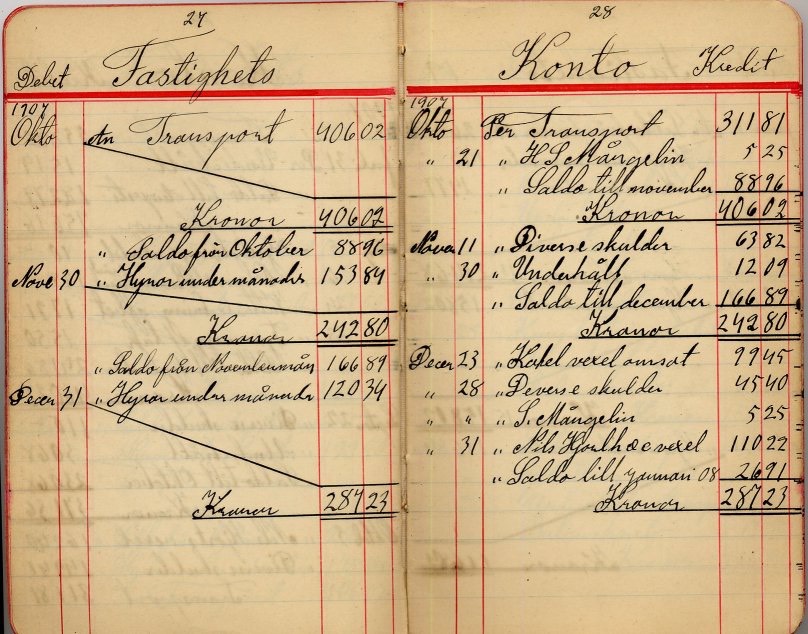 27
Debet Fastighets
1907
Okto An Transport 406 02
Kronor 406 02
" Saldo från Oktober 88 96
Nove 30 " Hyror under månades 153 84
Kronor 242 80
" Saldo från Novembermån 166 89
Decer 31 " Hyror under månads 120 34
Kronor 287 23
28
Konto Kredit
1907
Okto Per Transport 311 81
" 21 " H S Mångelin 5 25
" Saldo till november 88 96
Kronor 406 02
Nover 11 " Diverse skulder 63 82
" 30 " Underhåll 12 09
" Saldo till december 166 89
Kronor 242 80
Decer 23 " vexel omsat 99 45
" 28 " Deverse skulder 45 40
" " " S. Mångelin 5 25
" 31 " Nils vexel 110 22
" Saldo till januari 08 26 91
Kronor 287 23